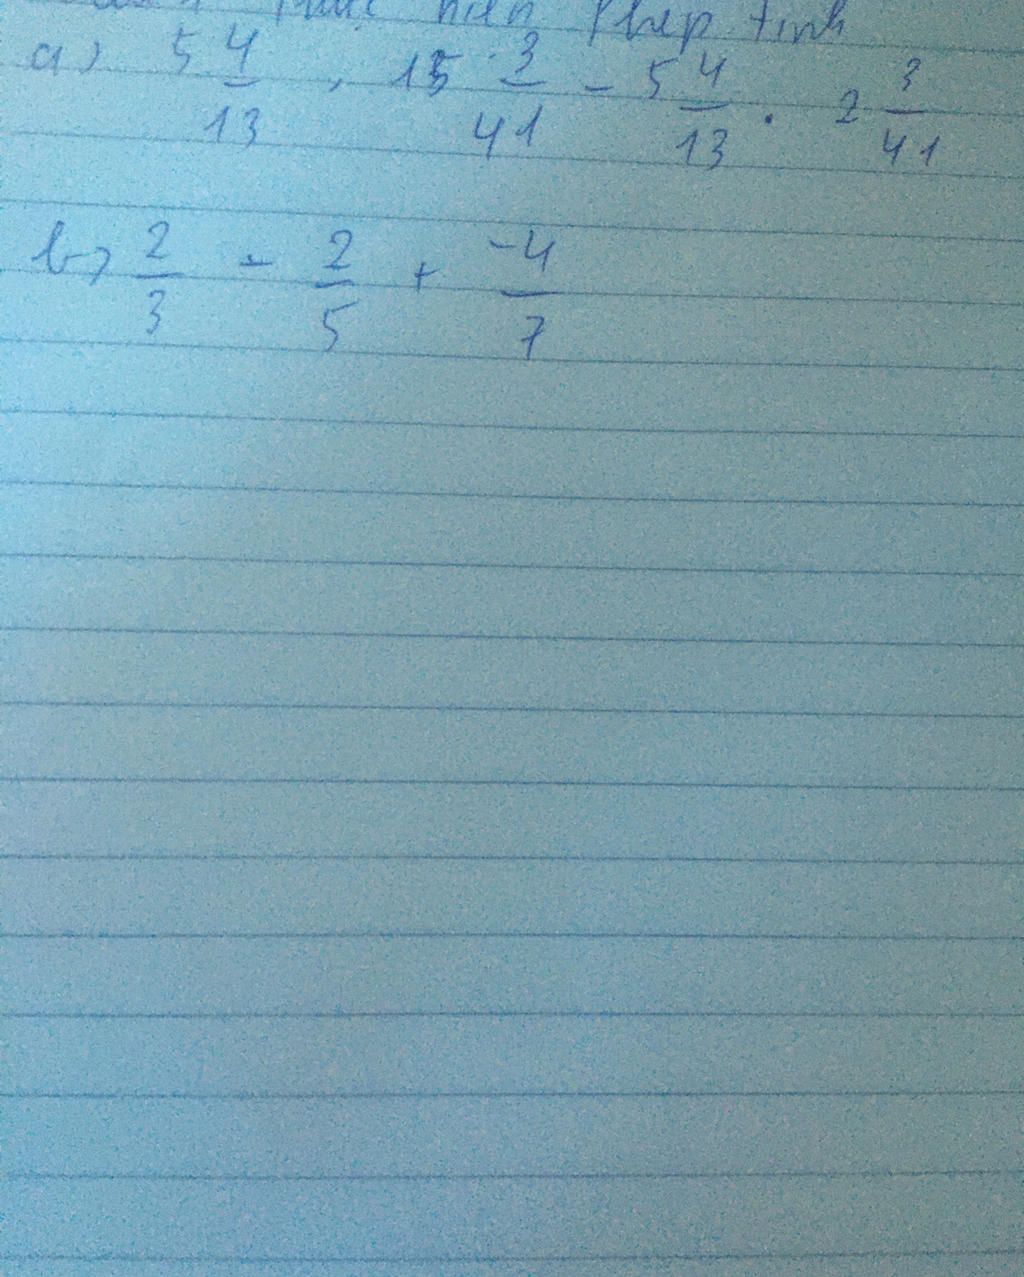 hiện phép tính
a) 5 4/13 . 15 3/41 - 5 4/13 . 2 3/41
b) 2/3 - 2/5 + -4/7